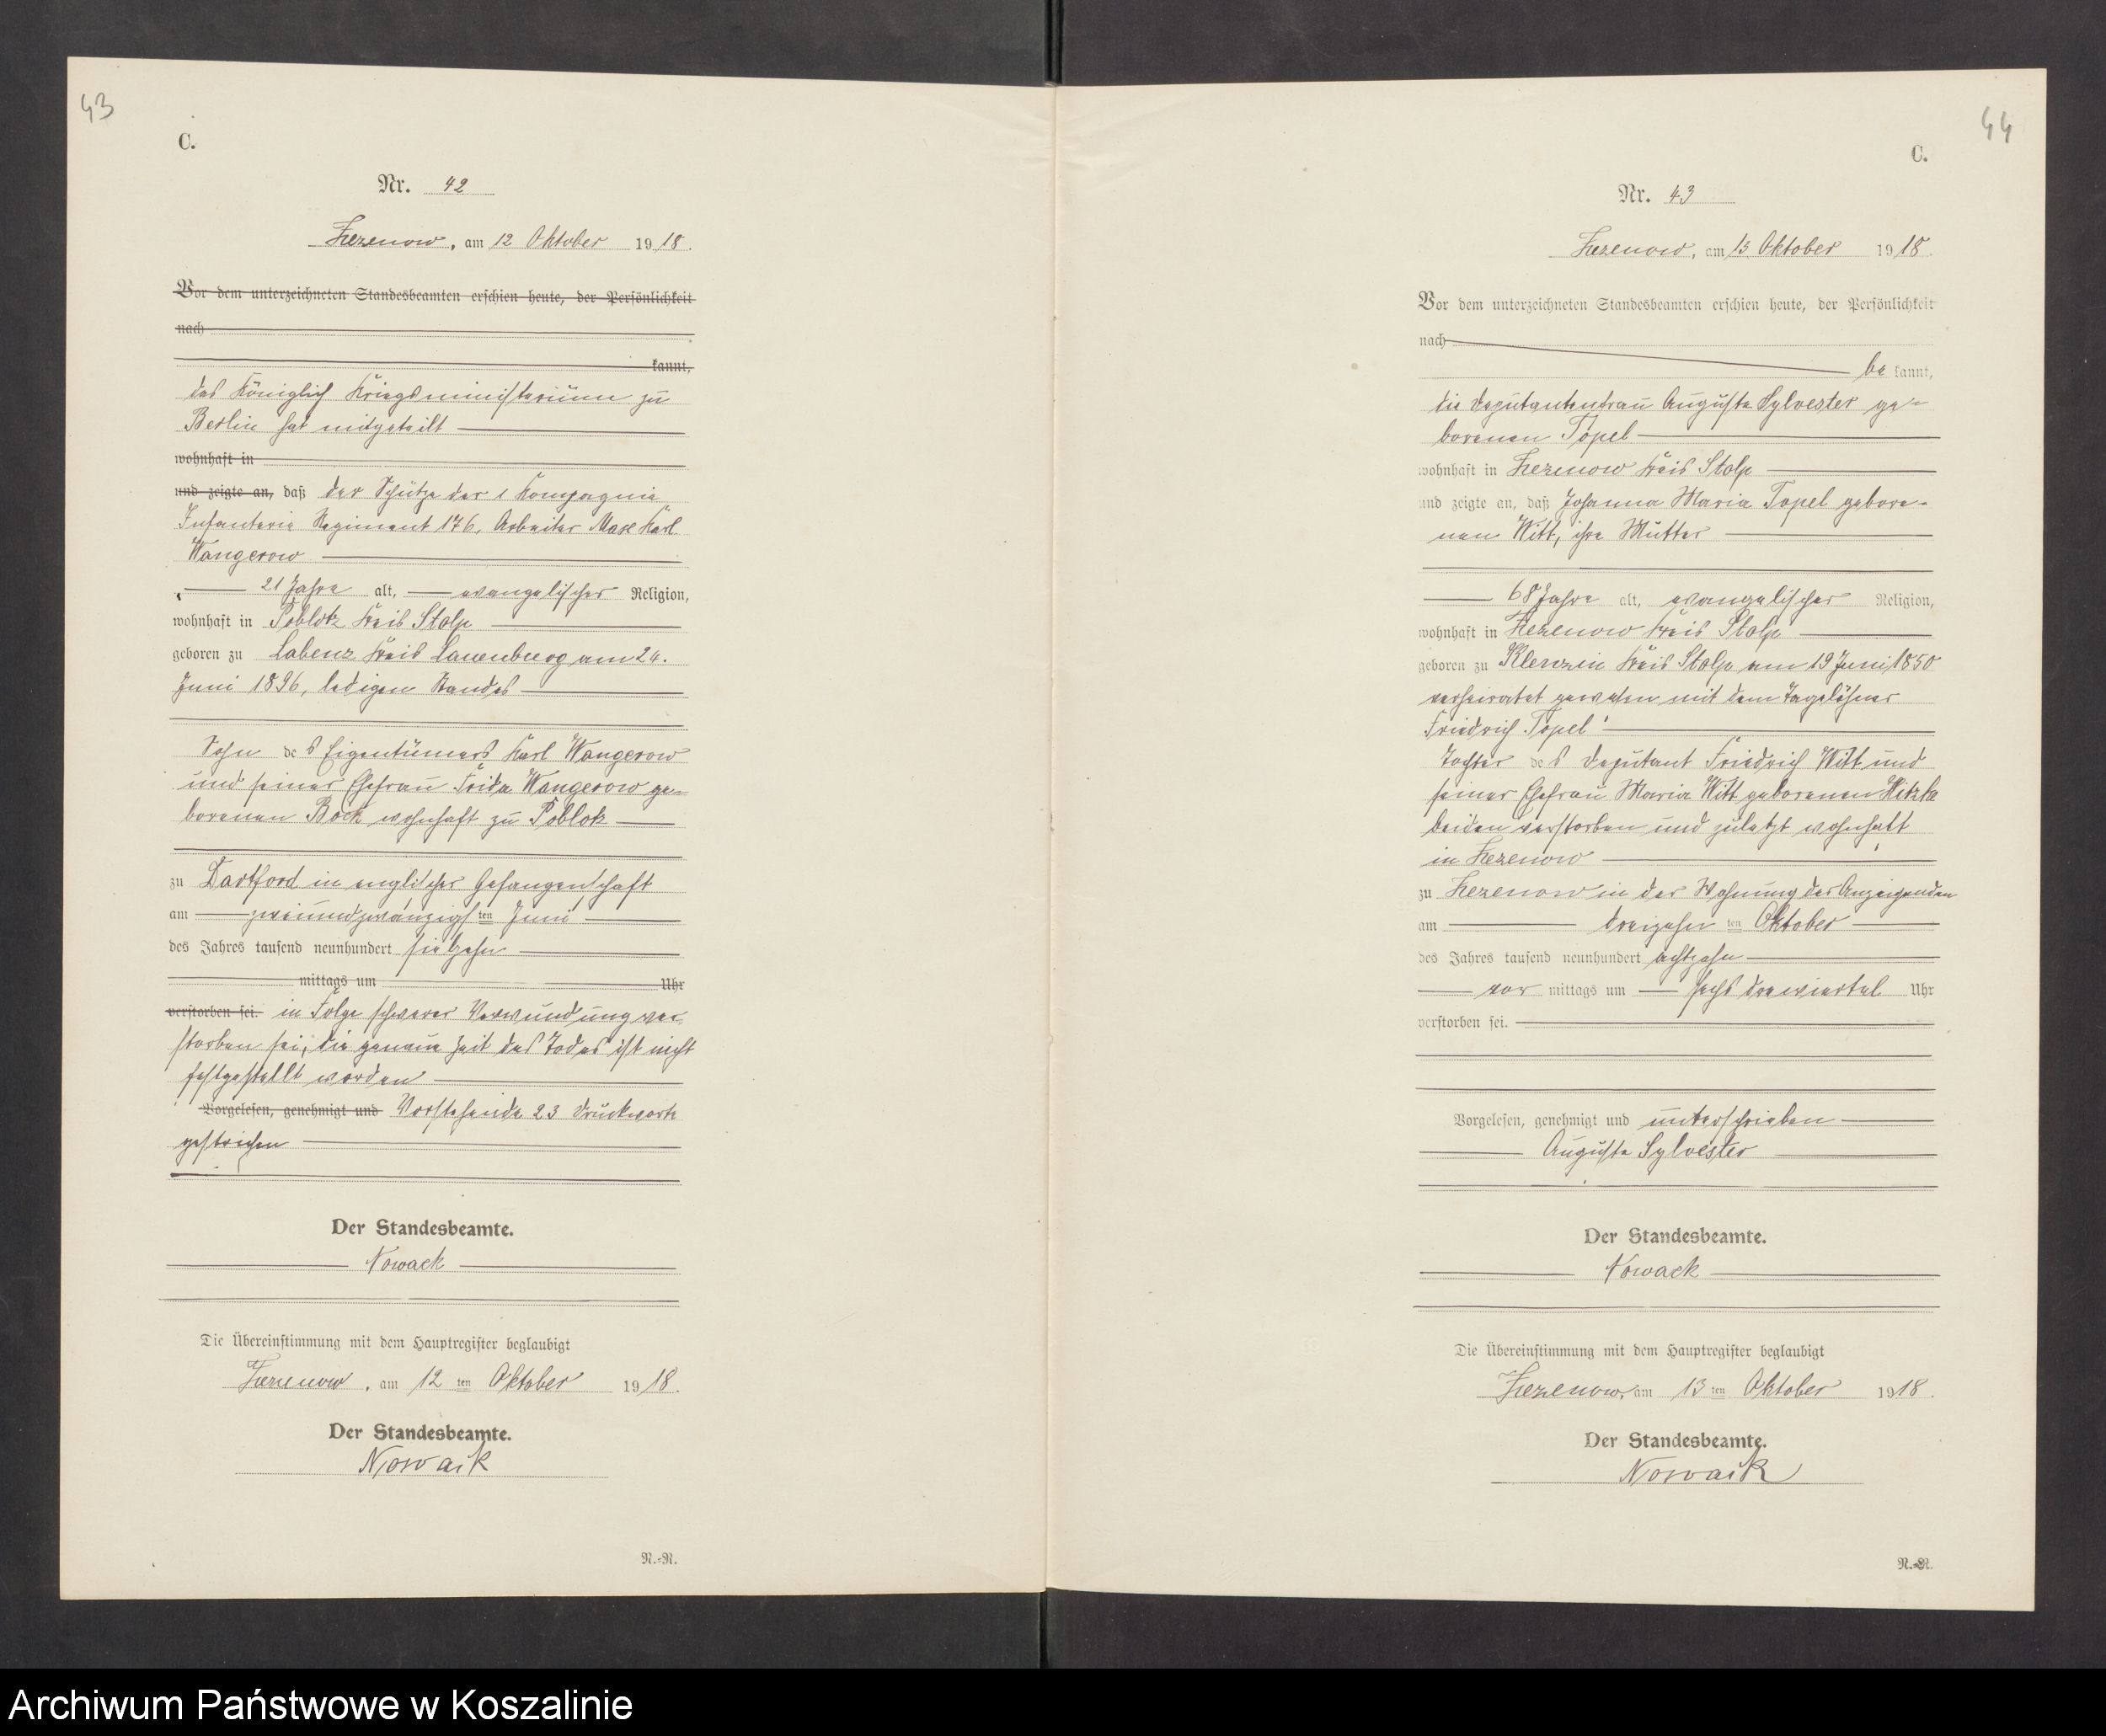 43
C.
Nr. 42
Zezenow, am 12 Oktober 1918.
Vor dem unterzeichneten Standesbeamten erschien heute, der Persönlichkeit
nach
kannt,
das Königlich Kriegsministerium zu
Berlin hat mitgeteilt
wohnhaft in
und zeigte an, daß der Schütze der 1 Kompagnie
Infanterie Regiment 176, Arbeiter Max Karl
Wangerow
21 Jahre alt, evangelischer Religion,
wohnhaft in Poblotz Kreis Stolp
geboren zu Labenz Kreis Lauenburg am 24.
Juni 1896, ledigen Standes
Sohn des Eigentümers Karl Wangerow
und seiner Ehefrau Frida Wangerow ge-
borenen Bock wohnhaft zu Poblotz
zu Dartford in englischer Gefangenschaft
am zweiundzwanzigsten Juni
des Jahres tausend neunhundert siebzehn
mittags um Uhr
verstorben sei. in Folge schwerer Verwundung ver-
storben sei, die genaue Zeit des Todes ist nicht
festgestellt worden
Vorgelesen, genehmigt und Vorstehende 23 Druckworte
gestrichen
Der Standesbeamte.
Nowack
Die Übereinstimmung mit dem Hauptregister beglaubigt
Zezenow, am 12 ten Oktober 1918.
Der Standesbeamte.
Nowack
N.-R.
44
C.
Nr. 43
Zezenow, am 13 Oktober 1918.
Vor dem unterzeichneten Standesbeamten erschien heute, der Persönlichkeit
nach
be kannt,
die Deputantenfrau Auguste Sylvester ge-
borenen Topel
wohnhaft in Zezenow Kreis Stolp
und zeigte an, daß Johanna Maria Topel gebore-
nen Witt, ihre Mutter
68 Jahre alt, evangelischer Religion,
wohnhaft in Zezenow Kreis Stolp
geboren zu Klenzin Kreis Stolp am 19 Juni 1850
verheiratet gewesen mit dem Tagelöhner
Friedrich Topel
Tochter des Deputant Friedrich Witt und
seiner Ehefrau Maria Witt geborenen
beiden verstorben und zuletzt wohnhaft
in Zezenow
zu Zezenow in der Wohnung der Anzeigenden
am dreizehn ten Oktober
des Jahres tausend neunhundert achtzehn
vor mittags um sechs dreiviertel Uhr
verstorben sei.
Vorgelesen, genehmigt und unterschrieben
Auguste Sylvester
Der Standesbeamte.
Nowack
Die Übereinstimmung mit dem Hauptregister beglaubigt
Zezenow, am 13 ten Oktober 1918.
Der Standesbeamte.
Nowack
N.-R.
Archiwum Państwowe w Koszalinie